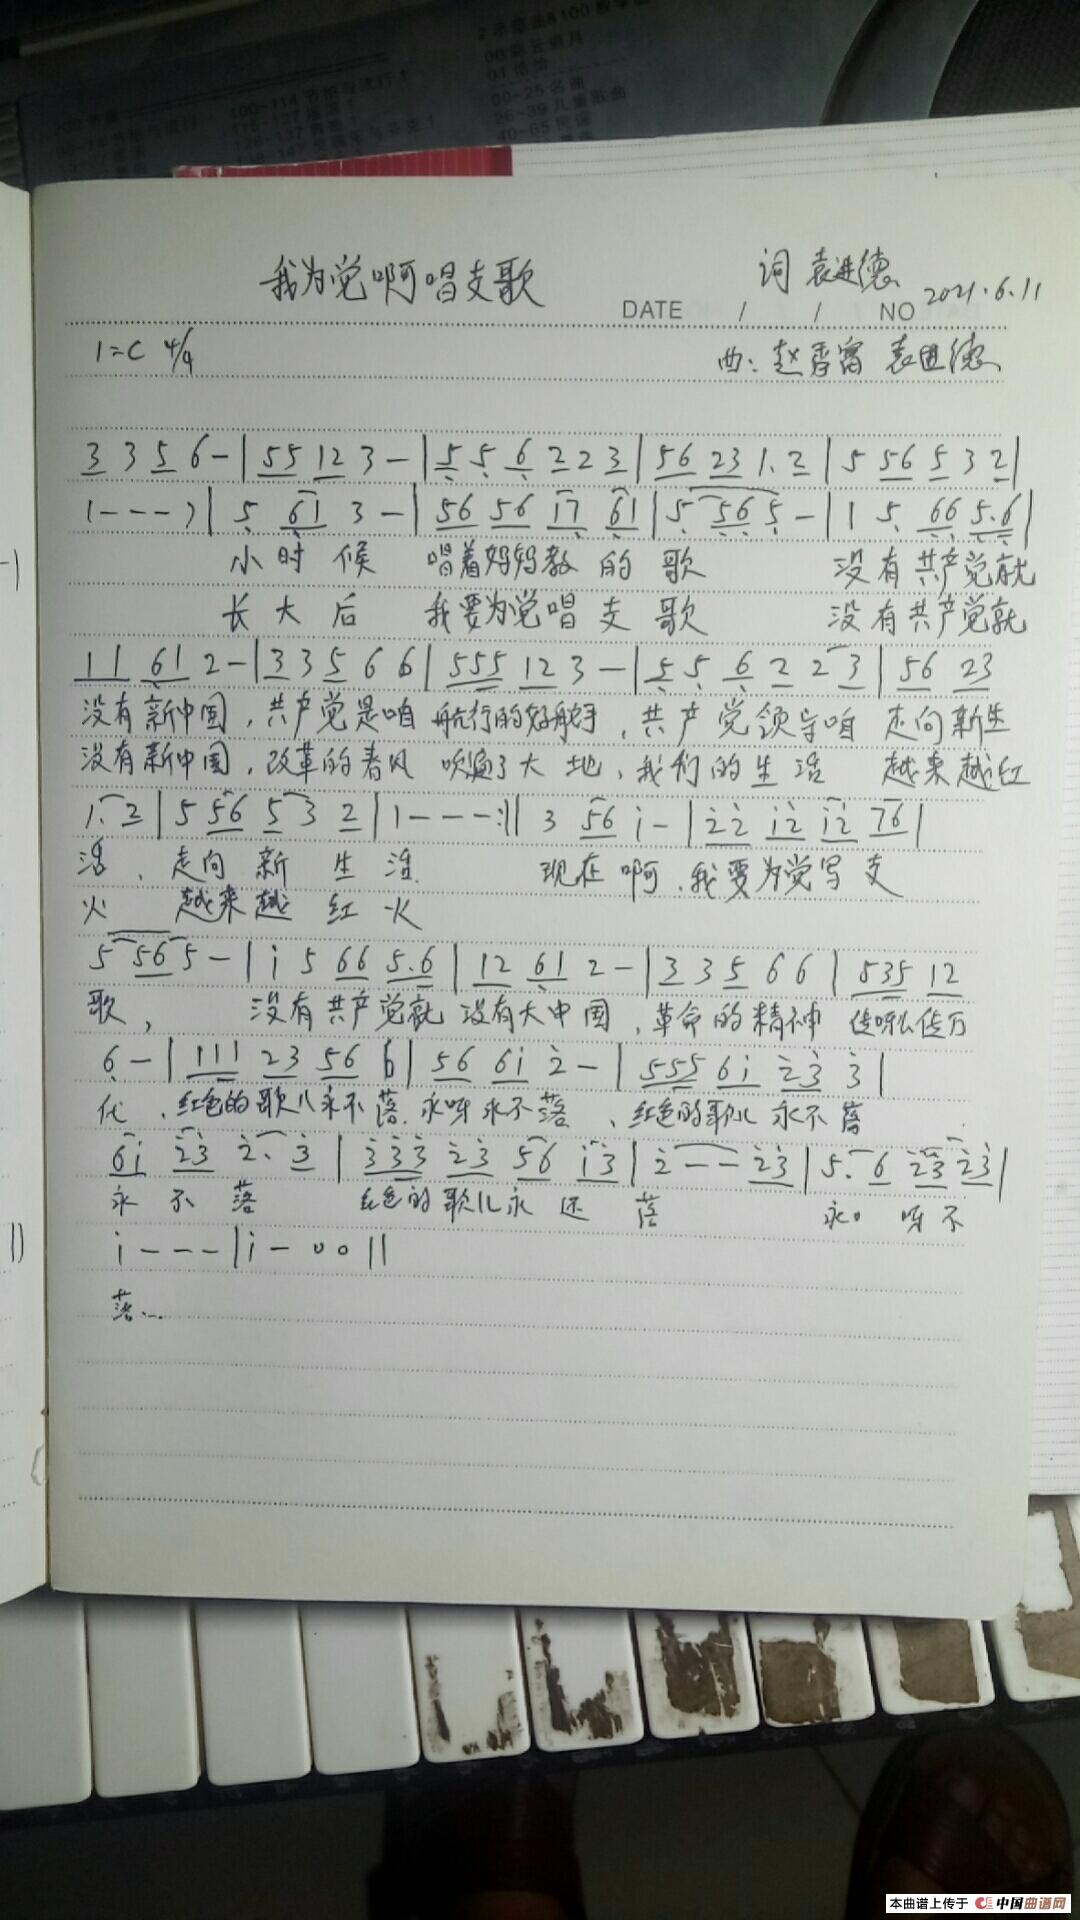 100-114 节拍与流行1
00-25 名曲
26-39 儿童歌曲
40-65 民谣
我为党啊唱支歌
词 袁进德
DATE / / NO 2021.6.11
1=C 4/4
曲: 赵香富 袁进德
3 3 5 6 - | 55 12 3 - | 5 5 6 2 2 3 | 56 23 1. 2 | 5 56 5 3 2 |
1 - - - ) | 5 61 3 - | 56 56 17 61 | 5 56 5 - | 1 5 66 5.6 |
小 时 候 唱着妈妈教 的 歌 没有共产党就
长 大 后 我要为党唱 支 歌 没有共产党就
11 61 2 - | 3 3 5 6 6 | 555 12 3 - | 5 5 6 2 2 3 | 56 23
没有新中国,共产党是咱 航行的好舵手,共产党领导咱 走向新生
没有新中国,改革的春风 吹遍了大地,我们的生活 越来越红
1. 2 | 5 56 5 3 2 | 1 - - - :|| 3 56 i - | 22 12 12 76 |
活,走向 新 生 活 现在啊,我要为党写支
火 越来越 红 火
5 56 5 - | i 5 66 5.6 | 12 61 2 - | 3 3 5 6 6 | 535 12
歌, 没有共产党就 没有大中国,革命的精神 传呀么传万
6 - | 111 23 56 6 | 56 6i 2 - | 555 6i 23 3 |
代,红色的歌儿永不落.永呀永不落、红色的歌儿永不落
6i 23 2. 3 | 333 23 56 i3 | 2 - - 23 | 5. 6 23 23 |
永 不 落 红色的歌儿永 还 落 永 呀不
i - - - | i - 0 0 ||
落...
本曲谱上传于 中国曲谱网